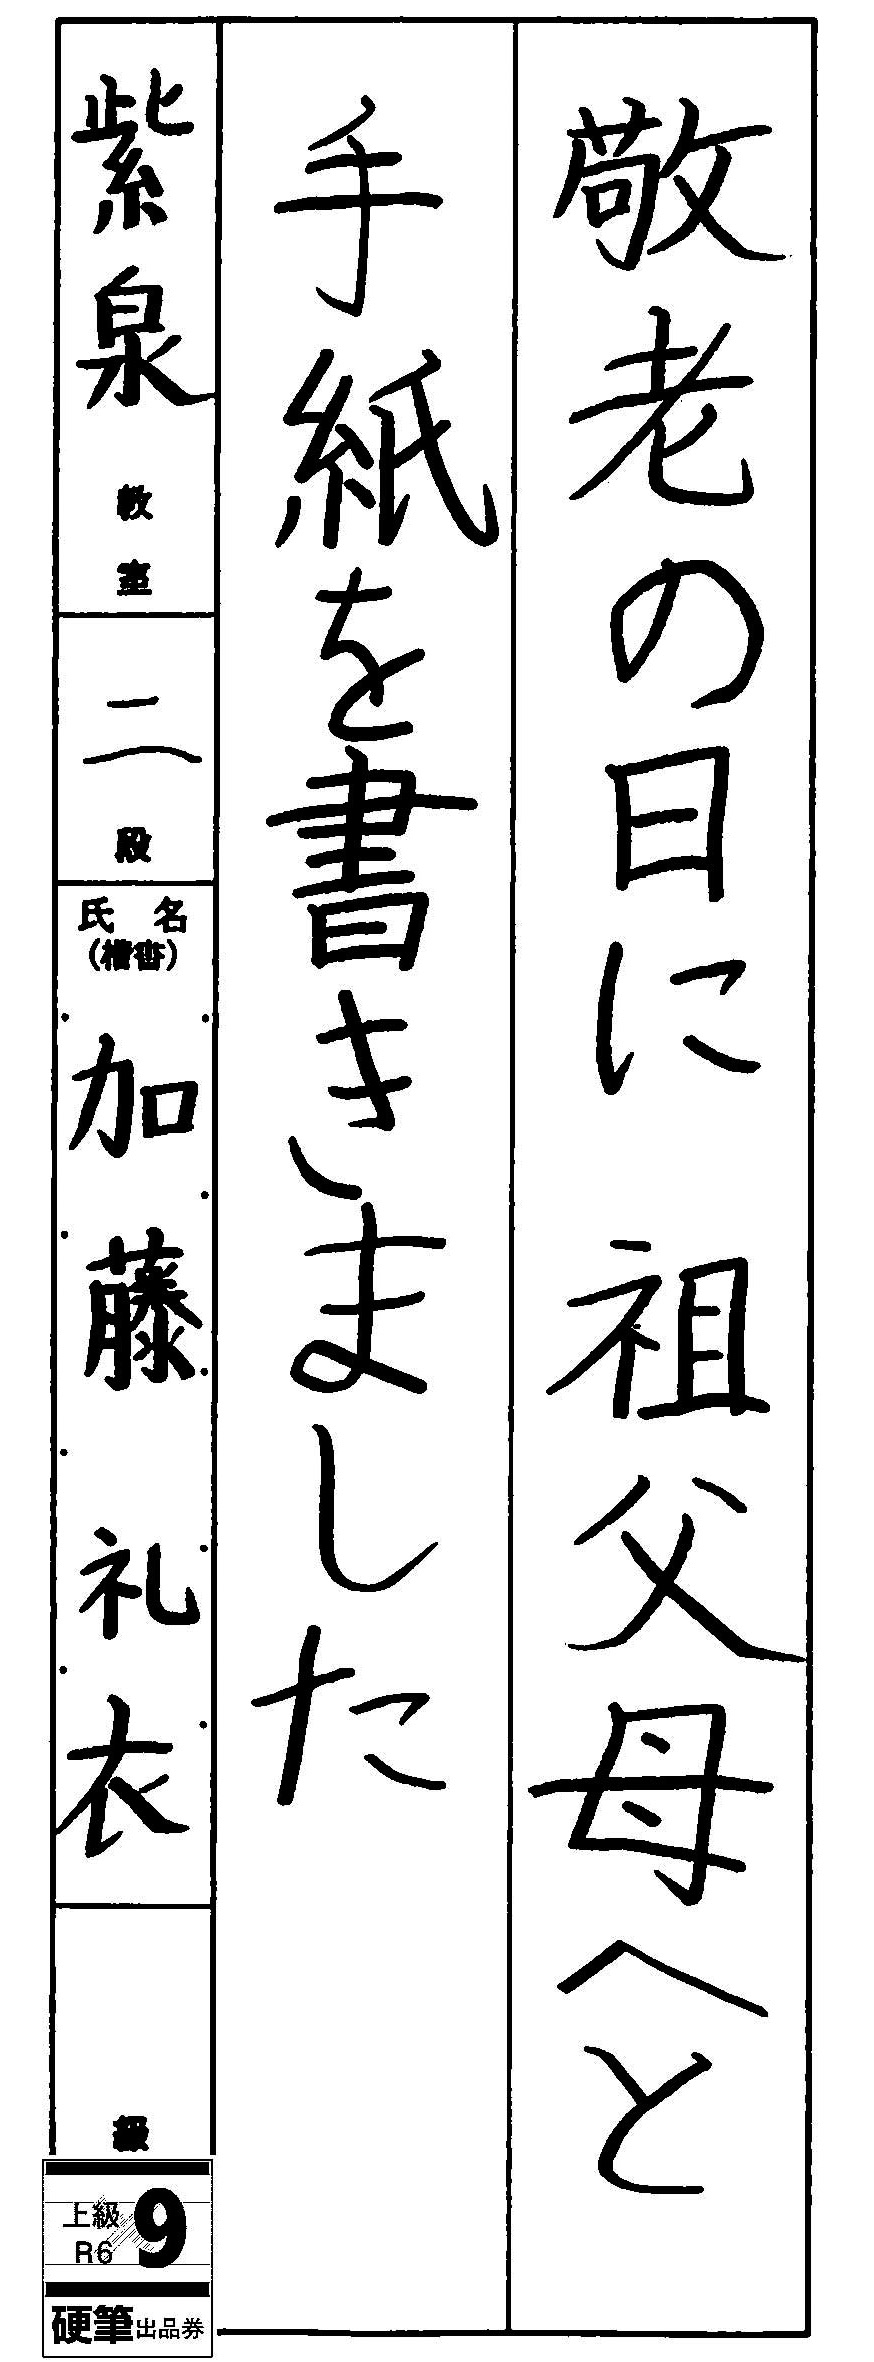 敬老の日に 祖父母へと
手紙を書きました
紫泉 教室
二 段
氏名
(楷書)
加藤 礼衣
級
上級 9
R6
硬筆 出品券